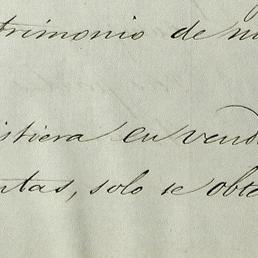 trimonio de mi
istiera en vend
ntas, solo se obte